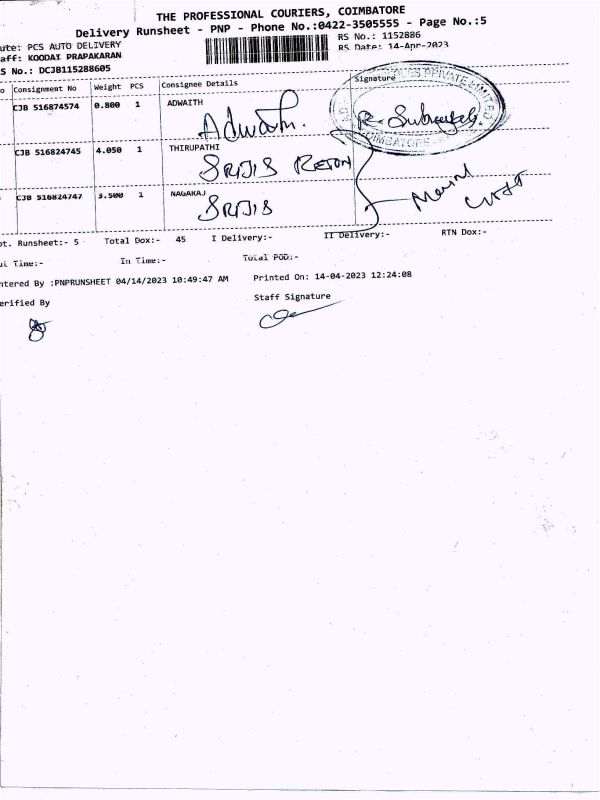 THE PROFESSIONAL COURIERS, COIMBATORE
Delivery Runsheet - PNP - Phone No.:0422-3505555 - Page No.:5
ute: PCS AUTO DELIVERY
RS No.: 1152886
aff: KOODAI PRAPAKARAN
RS Date: 14-Apr-2023
S No.: DCJB115288605
o Consignment No Weight PCS Consignee Details Signature
CJB 516874574 0.800 1 ADWAITH
Adwaith.
PRIVATE LIMITED
COIMBATORE
CJB 516824745 4.050 1 THIRUPATHI
CJB 516824747 3.500 1 NAGARAJ
ot. Runsheet:- 5 Total Dox:- 45 I Delivery:- II Delivery:- RTN Dox:-
ut Time:- In Time:- Total POD:-
ntered By :PNPRUNSHEET 04/14/2023 10:49:47 AM Printed On: 14-04-2023 12:24:08
erified By Staff Signature